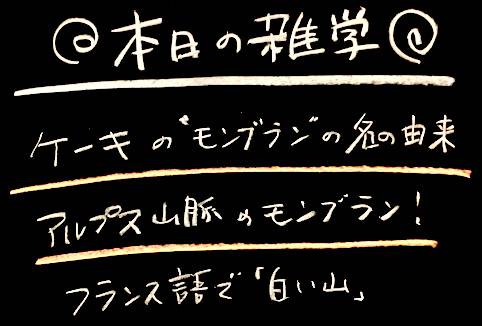 @本日の雑学@
ケーキの"モンブラン"の名の由来
アルプス山脈のモンブラン!
フランス語で「白い山」